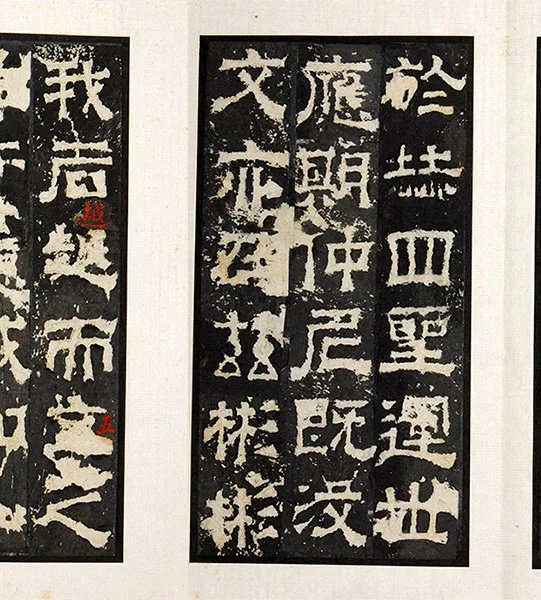 於赫四聖運世
應期仲尼既沒
文亦在茲彬彬
我后越而五之
越
五